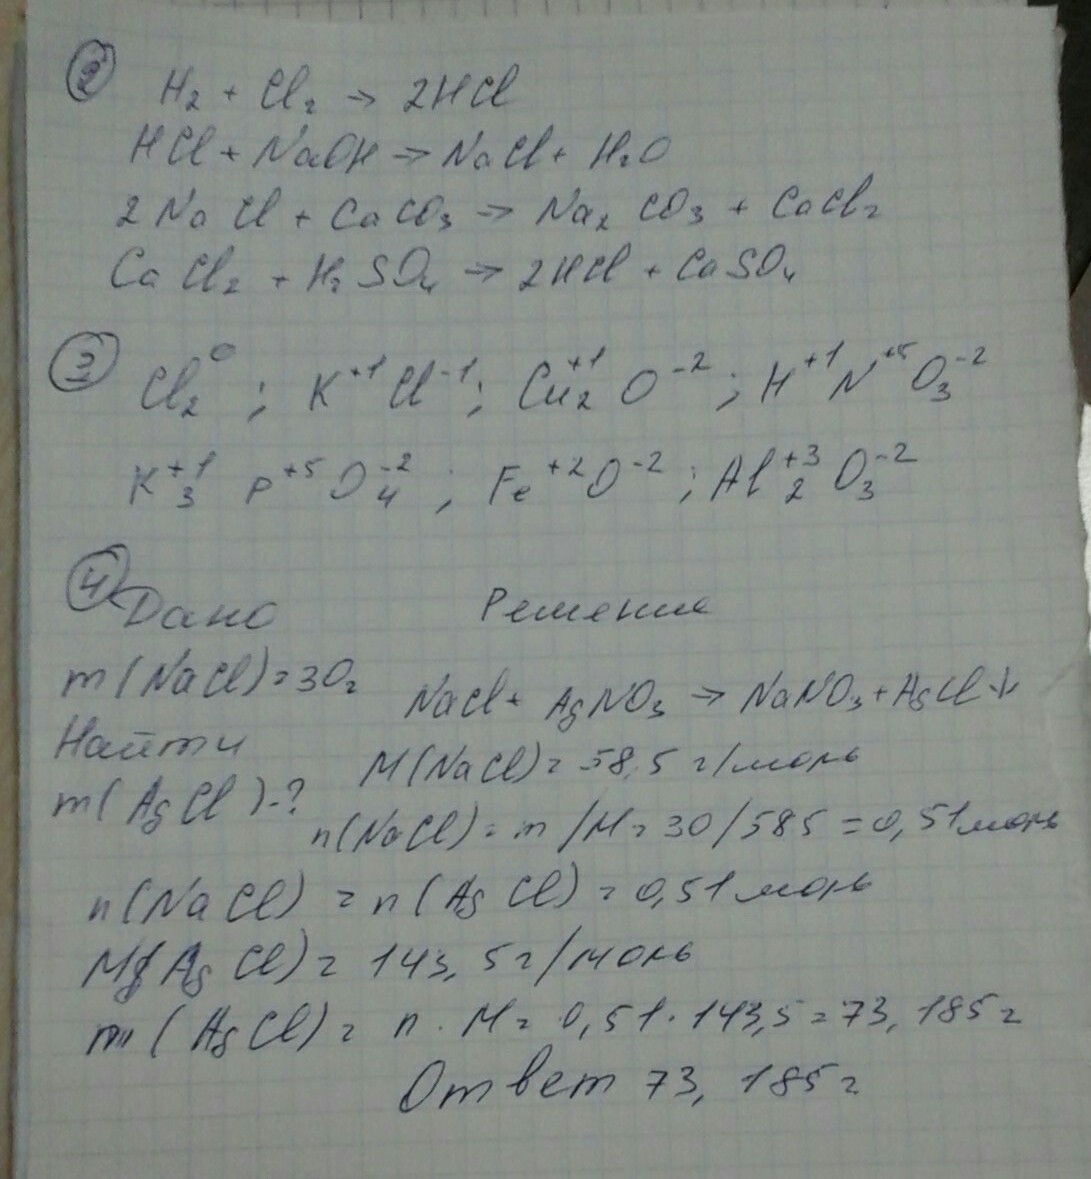 ② H₂ + Cl₂ → 2HCl
HCl + NaOH → NaCl + H₂O
2NaCl + CaCO₃ → Na₂CO₃ + CaCl₂
CaCl₂ + H₂SO₄ → 2HCl + CaSO₄
③ Cl₂⁰ ; K⁺¹Cl⁻¹ ; Cu₂⁺¹O⁻² ; H⁺¹N⁺⁵O₃⁻²
K₃⁺¹P⁺⁵O₄⁻² ; Fe⁺²O⁻² ; Al₂⁺³O₃⁻²
④ Дано Решение
m(NaCl)=30г
NaCl + AgNO₃ → NaNO₃ + AgCl↓
Найти
M(NaCl)= 58,5 г/моль
m(AgCl)-?
n(NaCl)= m/M= 30/585 = 0,51моль
n(NaCl) = n(AgCl) = 0,51моль
M(AgCl) = 143,5г/моль
m(AgCl)= n·M= 0,51·143,5=73,185г
Ответ 73,185г